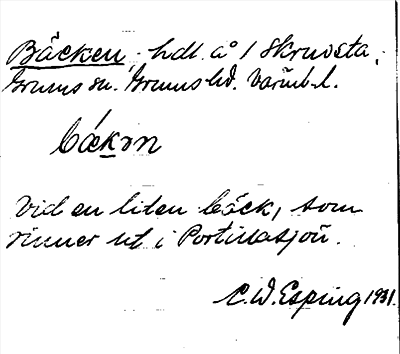 Bäcken, hdl. å 1 Skruvsta,
Grums sn. Grums hd. Värmb. l.
bǽkɔn
Vid en liten bäck, som
rinner ut i Portillasjön.
C.W. Esping 1931.